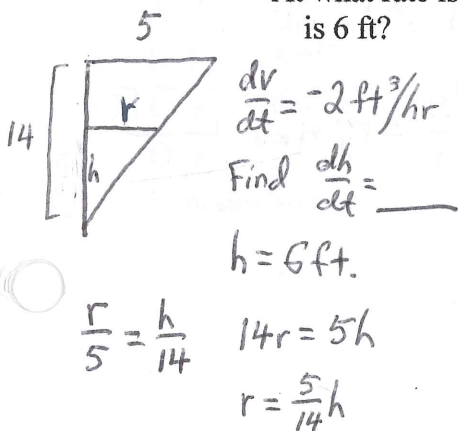 is 6 ft?
5
14
r
h
dv/dt = -2 ft³/hr
Find dh/dt = ____
h = 6 ft.
r/5 = h/14
14r = 5h
r = 5/14 h